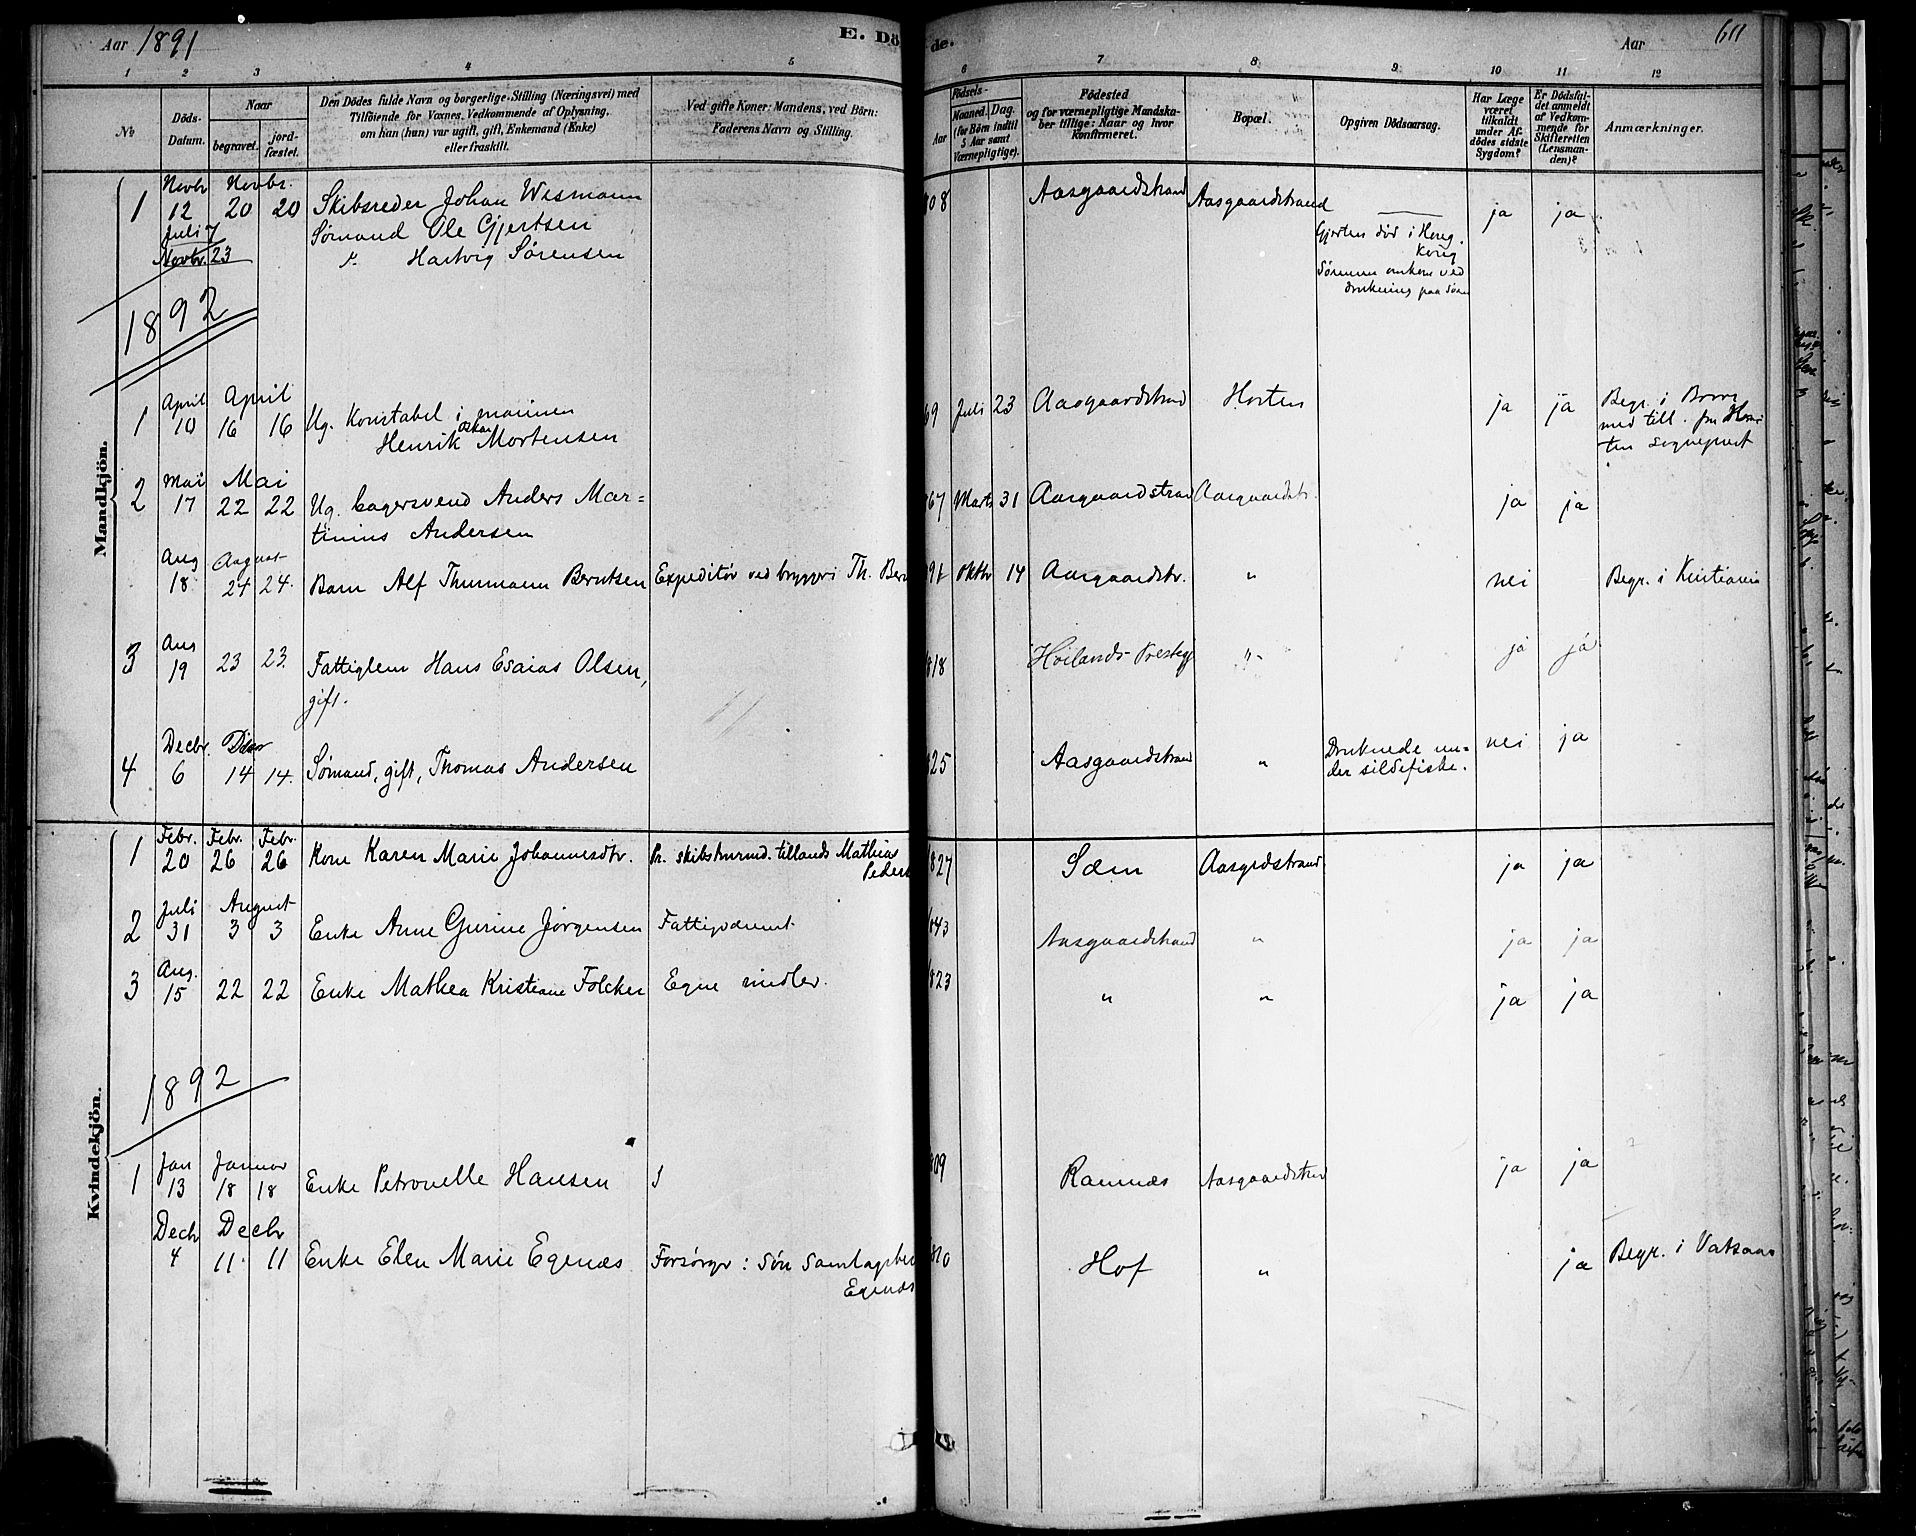 Aar 1891 E. Dö de. Aar 611
1 2 3 4 5 6 7 8 9 10 11 12
No
Döds-
Datum.
Naar
begravet.
jord-
fæstet.
Den Dödes fulde Navn og borgerlige Stilling (Næringsvei) med
Tilföiende for Voxnes Vedkommende af Oplysning,
om han (hun) var ugift, gift, Enkemand (Enke)
eller fraskilt.
Ved gifte Koner: Mandens, ved Börn:
Faderens Navn og Stilling.
Födsels-
Aar
Maaned. Dag.
(for Börn indtil
5 Aar samt
Værnepligtige).
Födested
og for værnepligtige Mandska-
ber tillige: Naar og hvor
Konfirmeret.
Bopæl.
Opgiven Dödsaarsag.
Har Læge
været
tilkaldt
under Af-
dödes sidste
Sygdom?
Er Dödsfal-
det anmeldt
af Vedkom-
mende for
Skifteretten
(Lensman-
den)?
Anmærkninger.
Mandkjön.
Novbr Novbr.
1 12 20 20 Skibsreder Johan Wismann 08 Aasgaardstrand Aasgaardstrand ja ja
Juli 7 Sømand Ole Gjertsen Gjertsen død i
Novbr. 23 Hartvig Sørensen Sørensen omkom ved
drukning paa Søen
1892
April April
1 10 16 16 Ug. Konstabel i marinen
Henrik Oskar Mortensen 69 Juli 23 Aasgaardstrand Horten ja ja Begr. i Borre
med till. fra Hor-
ten sogneprest
Mai Mai
2 17 22 22 Ug. bagersvend Anders Mar-
tinius Andersen 67 Marts 31 Aasgaardstrand Aasgaardstr. ja ja
Aug August
18 24 24. Barn Alf Thurmann Berntsen Expeditör ved bryggeri Th. Bern 91 Oktbr 14 Aasgaardstr. " nei Begr. i Kristiania
Aug
3 19 23 23. Fattiglem Hans Esaias Olsen,
gift. 818 Høilands Prestegj " ja ja
Decbr. Dcbr
4 6 14 14. Sømand, gift, Thomas Andersen 825 Aasgaardstrand " Druknede un-
der sildefiske. nei ja
Kvindekjön.
Febr. Febr. Febr.
1 20 26 26 Kone Karen Marie Johannesdtr. Pr. skibstømmd. tillands Mathias
Peders 827 Sæm Aasgrdstrand ja ja
Juli August
2 31 3 3 Enke Anne Gurine Jörgensen Fattigvæsenet 43 Aasgaardstrand " ja ja
Aug.
3 15 22 22 Enke Mathea Kristiane Folcker Egne midler. 823 " " ja ja
1892
Jan Januar
1 13 18 18 Enke Petronelle Hansen 809 Ramnæs Aasgaardstrand ja ja
Decbr Decbr
4 11. 11 Enke Elen Marie Egenæs Forsørger: Søn
Egenæs 810 Hof " ja Begr. i Vatsaas